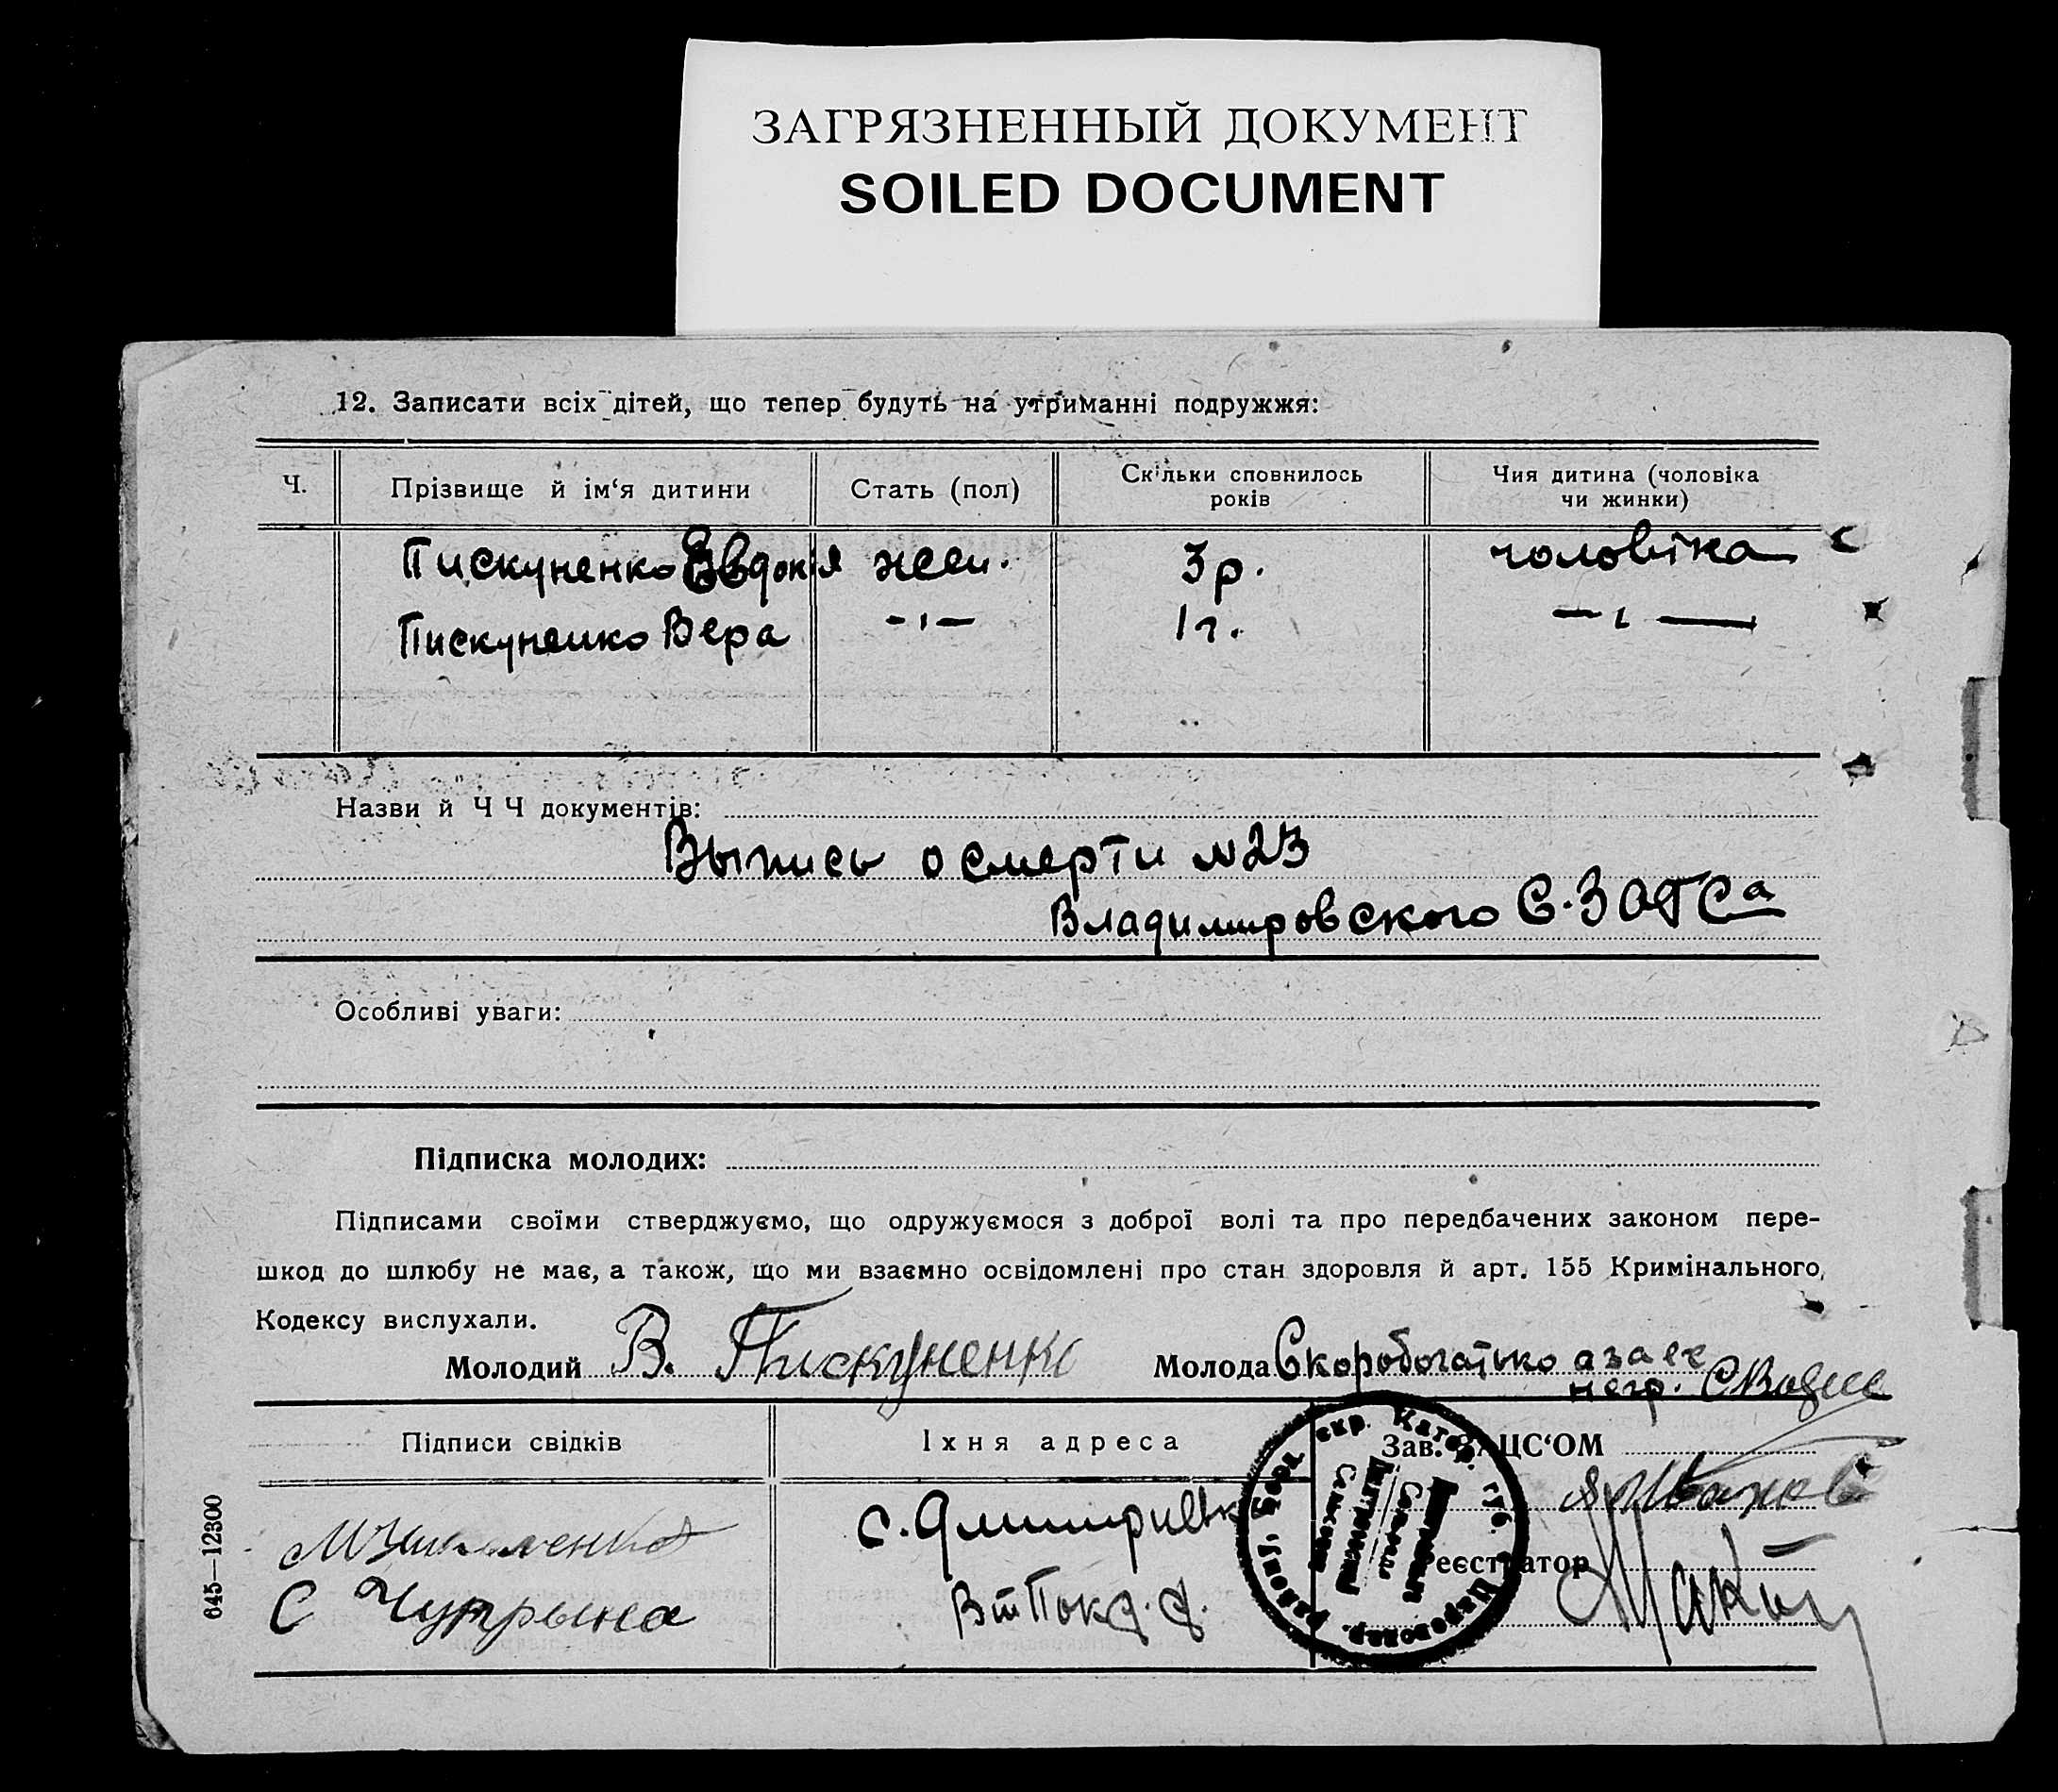 ЗАГРЯЗНЕННЫЙ ДОКУМЕНТ
SOILED DOCUMENT
12. Записати всіх дітей, що тепер будуть на утриманні подружжя:
Ч. Прізвище й ім‘я дитини Стать (пол) Скільки сповнилось років Чия дитина (чоловіка чи жинки)
Пискуненко Евдокія жен. 3 р. чоловіка
Пискуненко Вера -"- 1 г. -"-
Назви й Ч Ч документів:
Выпись о смерти №23
Владимировского С.ЗАГСа
Особливі уваги:
Підписка молодих:
Підписами своїми стверджуємо, що одружуємося з доброї волі та про передбачених законом пере-
шкод до шлюбу не має, а також, що ми взаємно освідомлені про стан здоровля й арт. 155 Кримінального
Кодексу вислухали.
Молодий В. Пискуненко Молода Скоробогатько
негр.
Підписи свідків Їхня адреса Зав. ЗАЦС‘ОМ
с. Дмитрівк
С Чупрына
Реєстратор
645—12300